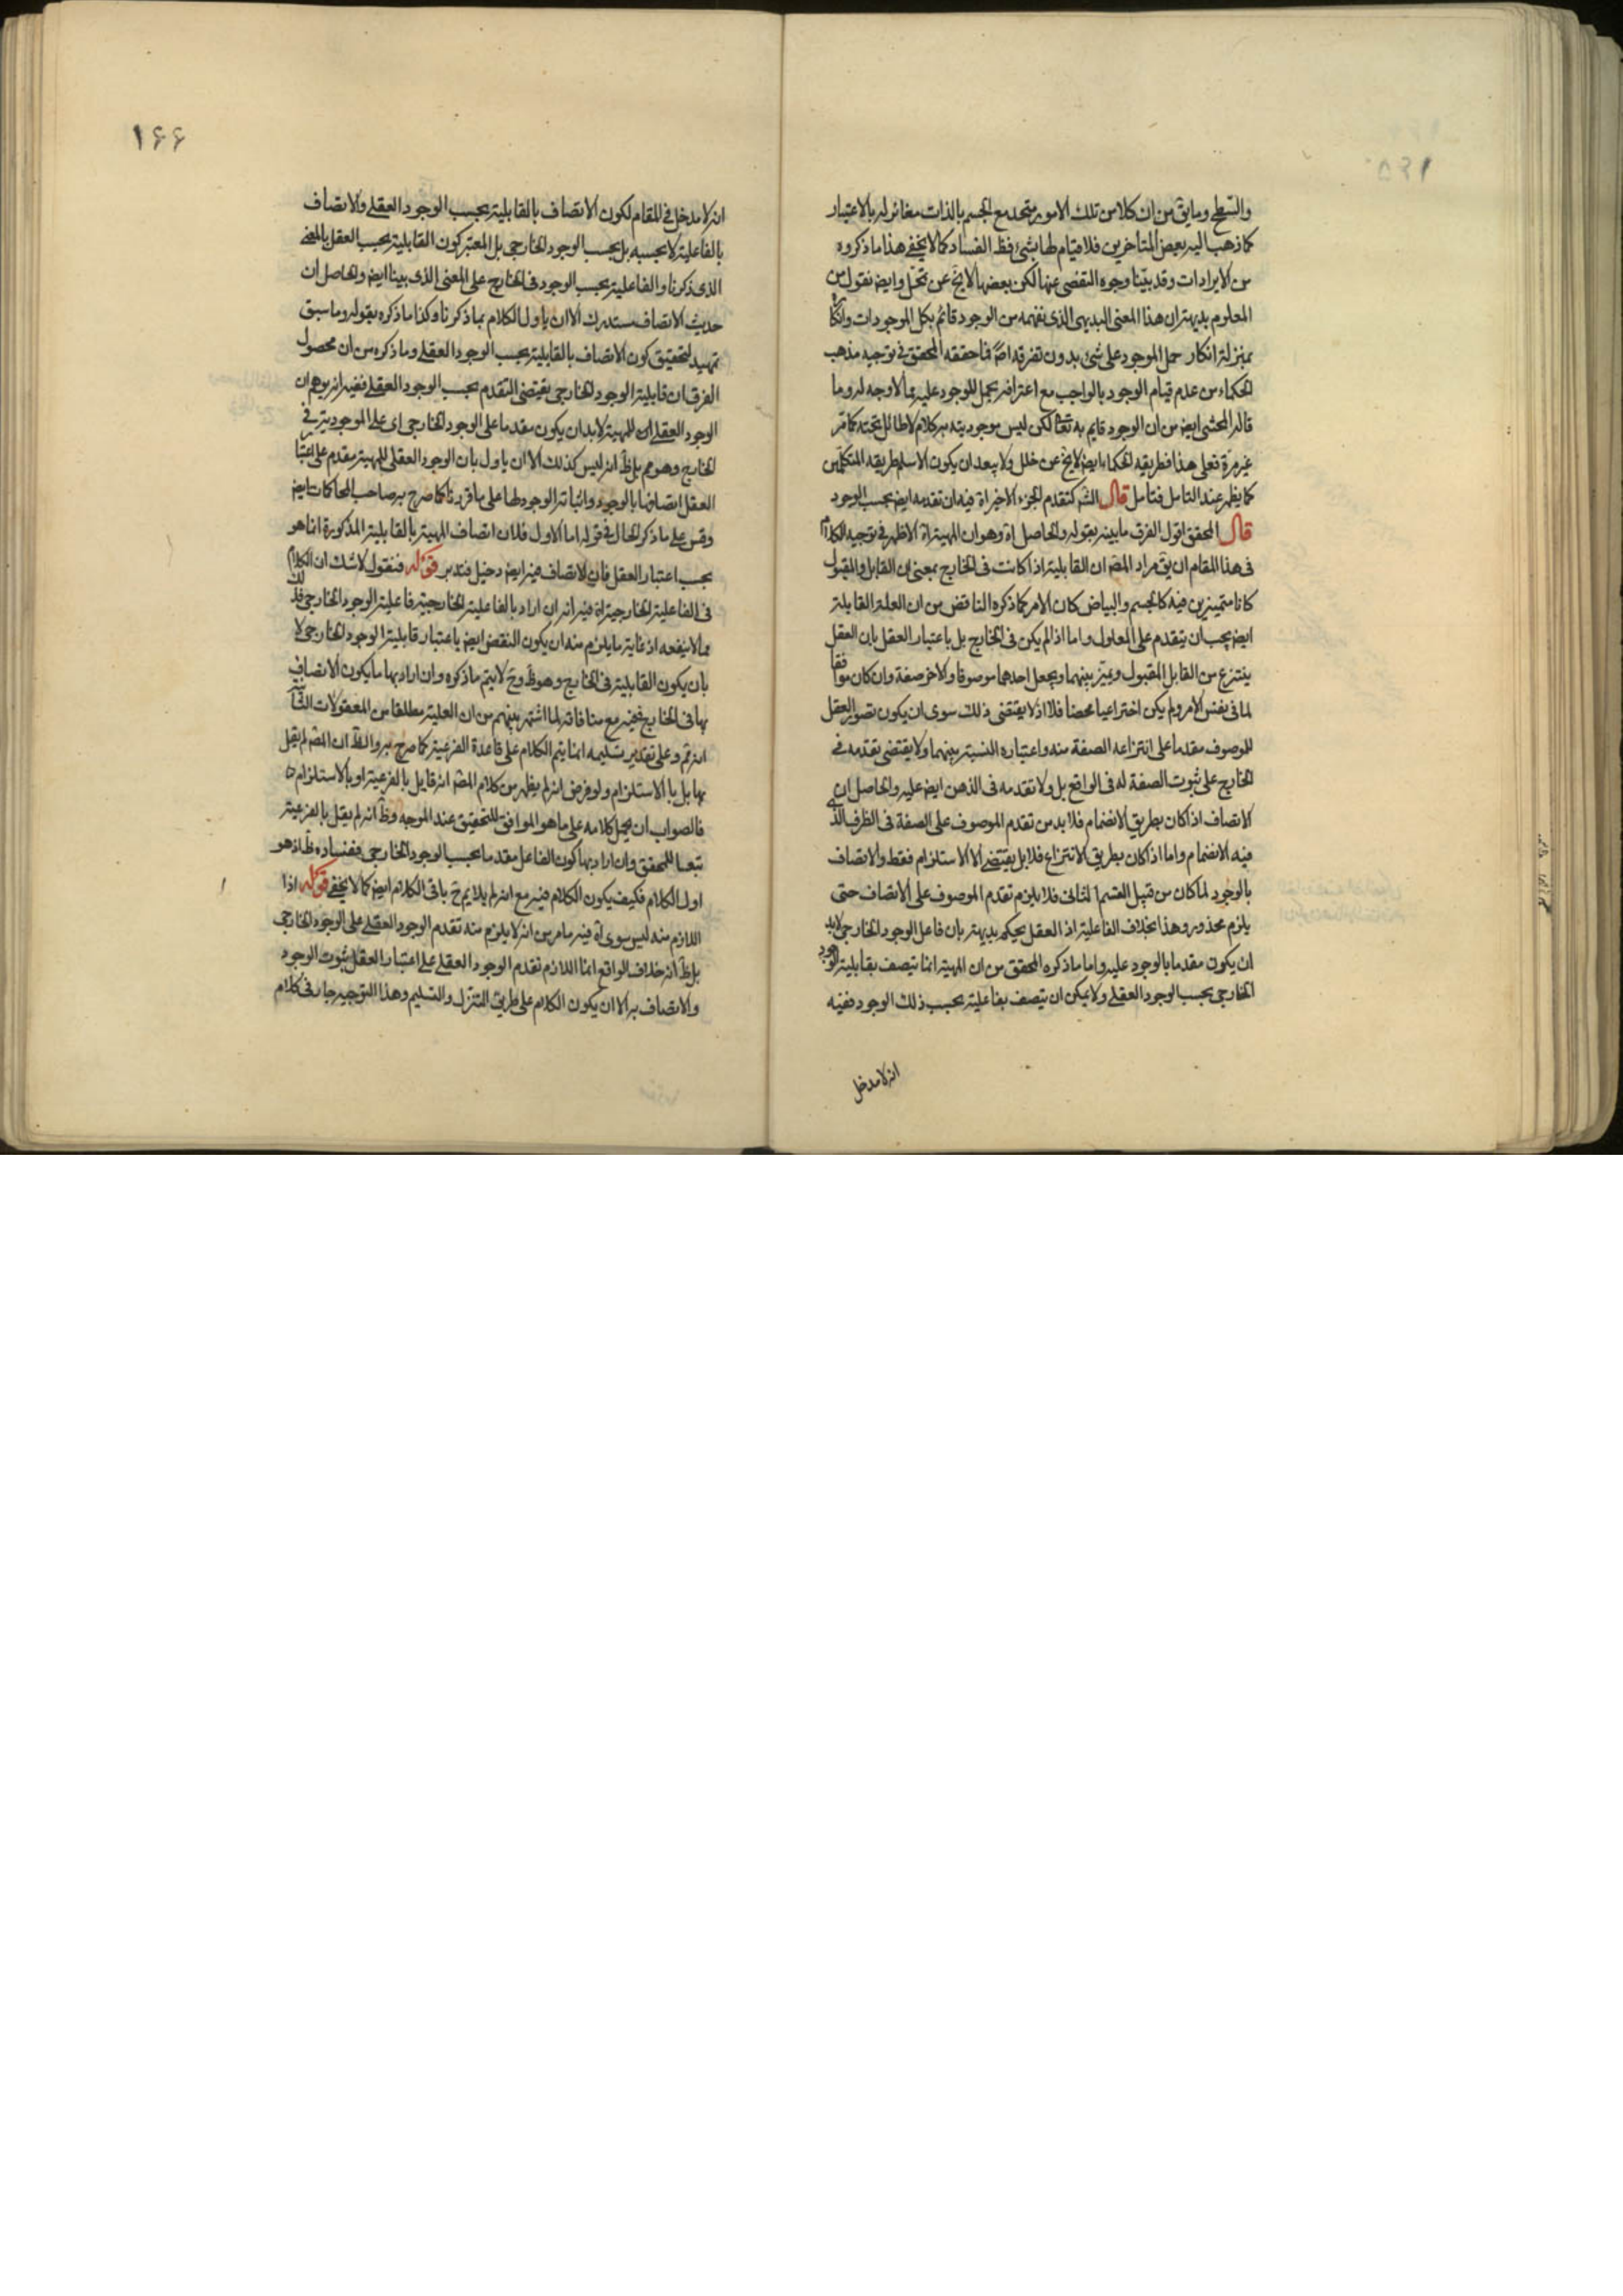 والسطح وما يق من ان كلا من تلك الامور متحد مع الجسم بالذات مغائر له بالاعتبار
كما ذهب اليه بعض المتاخرين فلا قيام لها بشئ فظ الفساد كما لا يخفى هذا ما ذكروه
من الايرادات وقد بيّنا وجوه التفصى عنها لكن بعضها لا يخ عن تمحّل وايض نقول من
المعلوم بديهة ان هذا المعنى البديهى الذى نفهمه من الوجود قائم بكل الموجودات وانكاره
بمنزلة انكار حمل الموجود على شئ بدون تفرقه اصلا فما حققه المحقق فى توجيه مذهب
الحكماء من عدم قيام الوجود بالواجب مع اعترافه بحمل الموجود عليه مما لا وجه له وما
قاله المحشى ايض من ان الوجود قايم به تعالى لكن ليس موجوديته به كلام لا طائل تحته كما مر
غير مرة فعلى هذا فطريقه الحكماء ايض لا يخ عن خلل ولا يبعد ان يكون الاسلم طريقه المتكلمين
كما يظهر عند التامل فتامل قال الشر كتقدم الجزء الاخير اه فيه ان تقدمه ايض بحسب الوجود
قال المحقق اقول الفرق ما بينه بقوله والحاصل اه وهو ان المهية اه الاظهر فى توجيه الكلام
فى هذا المقام ان يق مراد المض ان القابلية اذا كانت فى الخارج بمعنى ان القابل والمقبول
كانا متميزين فيه كالجسم والبياض كان الامر كما ذكره الناقض من ان العلة القابلة
ايض يجب ان يتقدم على المعلول واما اذا لم يكن فى الخارج بل باعتبار العقل بان العقل
ينتزع من القابل المقبول ويميّز بينهما ويجعل احدهما موصوفا والاخر صفة وان كان موافقا
لما فى نفس الامر ولم يكن اختراعيا محضا فلا اذ لا يقتضى ذلك سوى ان يكون تصور العقل
للموصوف مقدما على انتزاعه الصفة منه واعتباره النسبة بينهما ولا يقتضى تقدمه فى
الخارج على ثبوت الصفة له فى الواقع بل ولا تقدمه فى الذهن ايض عليه والحاصل ان
الاتصاف اذا كان بطريق الانضمام فلا بد من تقدم الموصوف على الصفة فى الظرف الذى
فيه الانضمام واما اذا كان بطريق الانتزاع فلا بل يقتضى الا الاستلزام فقط والاتصاف
بالوجود لما كان من قبيل القسم الثانى فلا يلزم تقدم الموصوف على الاتصاف حتى
يلزم محذور وهذا بخلاف الفاعلية اذ العقل يحكم بديهة بان فاعل الوجود الخارجى لابد
ان يكون مقدما بالوجود عليه واما ما ذكره المحقق من ان المهية انما تتصف بقابلية الوجود
الخارجى بحسب الوجود العقلى ولا يمكن ان يتصف بفاعلية بحسب ذلك الوجود ففيه
انه لا مدخل
١٦٦
انه لا مدخل فى المقام لكون الاتصاف بالقابلية بحسب الوجود العقلى والاتصاف
بالفاعلية لا بحسبه بل بحسب الوجود الخارجى بل المعتبر كون القابلية بحسب العقل بالمعنى
الذى ذكرنا والفاعلية بحسب الوجود فى الخارج على المعنى الذى بينا ايض والحاصل ان
حديث الاتصاف مستدرك الا ان ياول الكلام بما ذكرنا وكذا ما ذكره بقوله وما سبق
تمهيد لتحقيق كون الاتصاف بالقابلية بحسب الوجود العقلى وما ذكره من ان محصول
الفرق ان قابلية الوجود الخارجى يقتضى التقدم بحسب الوجود العقلى ففيه انه يوهم ان
الوجود العقلى اى للمهية لابد ان يكون مقدما على الوجود الخارجى اى على الموجودية فى
الخارج وهو مم بل ظ انه ليس كذلك الا ان ياول بان الوجود العقلى للمهية مقدم على اعتبار
العقل اتصافها بالوجود واثباته الوجود لها على ما قررنا كما صرح به صاحب المحاكمات ايض
وقس على ما ذكر الحال فى قوله اما الاول فلان اتصاف المهية بالقابلية المذكورة انما هو
بحسب اعتبار العقل فان الاتصاف فيه ايض دخيل فتدبر قوله فنقول لا شك ان الكلام
فى الفاعلية الخارجية اه فيه انه ان اراد بالفاعلية الخارجية فاعلية الوجود الخارجى فذلك
مما لا ينفعه اذ غاية ما يلزم منه ان يكون النقض ايض باعتبار قابلية الوجود الخارجى لا
بان يكون القابلية فى الخارج وهو ظ وح لا يتم ما ذكره وان اراد بها ما يكون الاتصاف
بها فى الخارج ففيه مع منافاته لما اشتهر بينهم من ان العلية مطلقا من المعقولات الثانية
انه مم وعلى تقدير تسليمه انما يتم الكلام على قاعدة الفرعية كما صرح به والظ ان المض لم يقل
بها بل بالاستلزام ولو فرض انه لم يظهر من كلام المض انه قايل بالفرعية او بالاستلزام
فالصواب ان يحمل كلامه على ما هو الموافق للتحقيق عند الموجه وظ انه لم يقل بالفرعية
تبعا للمحقق وان اراد بها كون الفاعل مقدما بحسب الوجود الخارجى ففساده ظ اذ هو
اول الكلام فكيف يكون الكلام فيه مع انه لم يلايم ح باقى الكلام ايض كما لا يخفى قوله اذا
اللازم منه ليس سوى اه فيه ما مر من انه لا يلزم منه تقدم الوجود العقلى على الوجود الخارجى
بل ظ انه خلاف الواقع انما اللازم تقدم الوجود العقلى على اعتبار العقل ثبوت الوجود
والاتصاف به الا ان يكون الكلام على طريق التنزل والتسليم وهذا التوجيه جار فى كلام